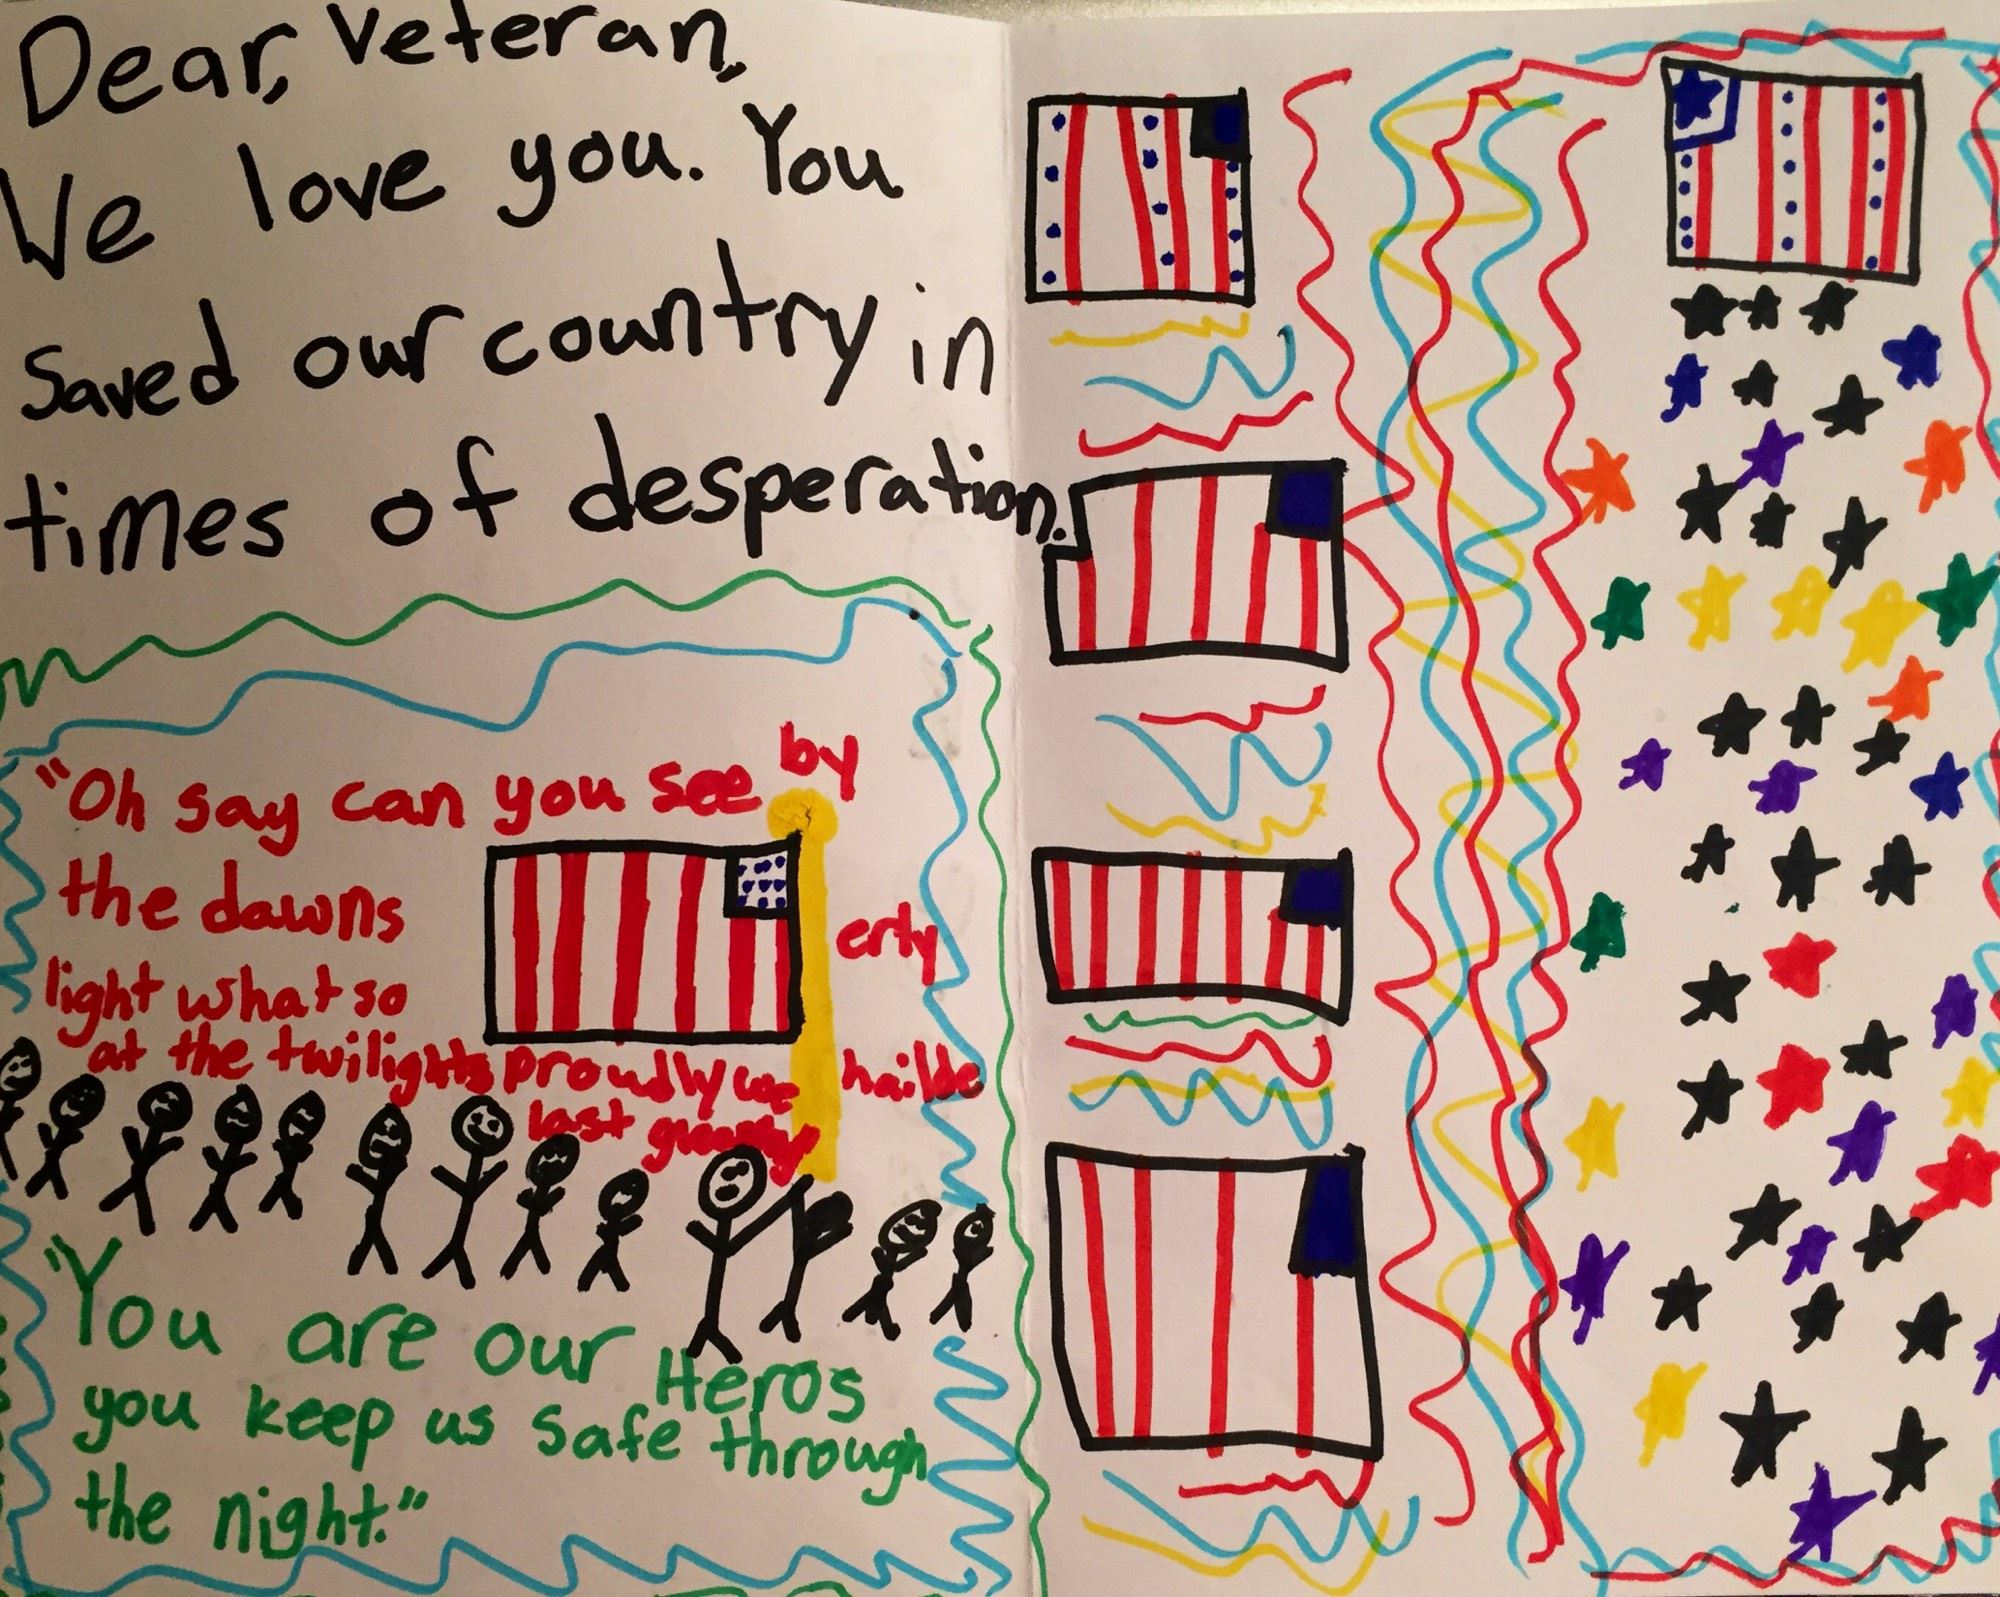 Dear, Veteran,
We love you. You
saved our country in
times of desperation.
"Oh say can you see by
the dawns erly
light what so
at the twilights proudly we hailde
last
"You are our Heros
you keep us safe through
the night."